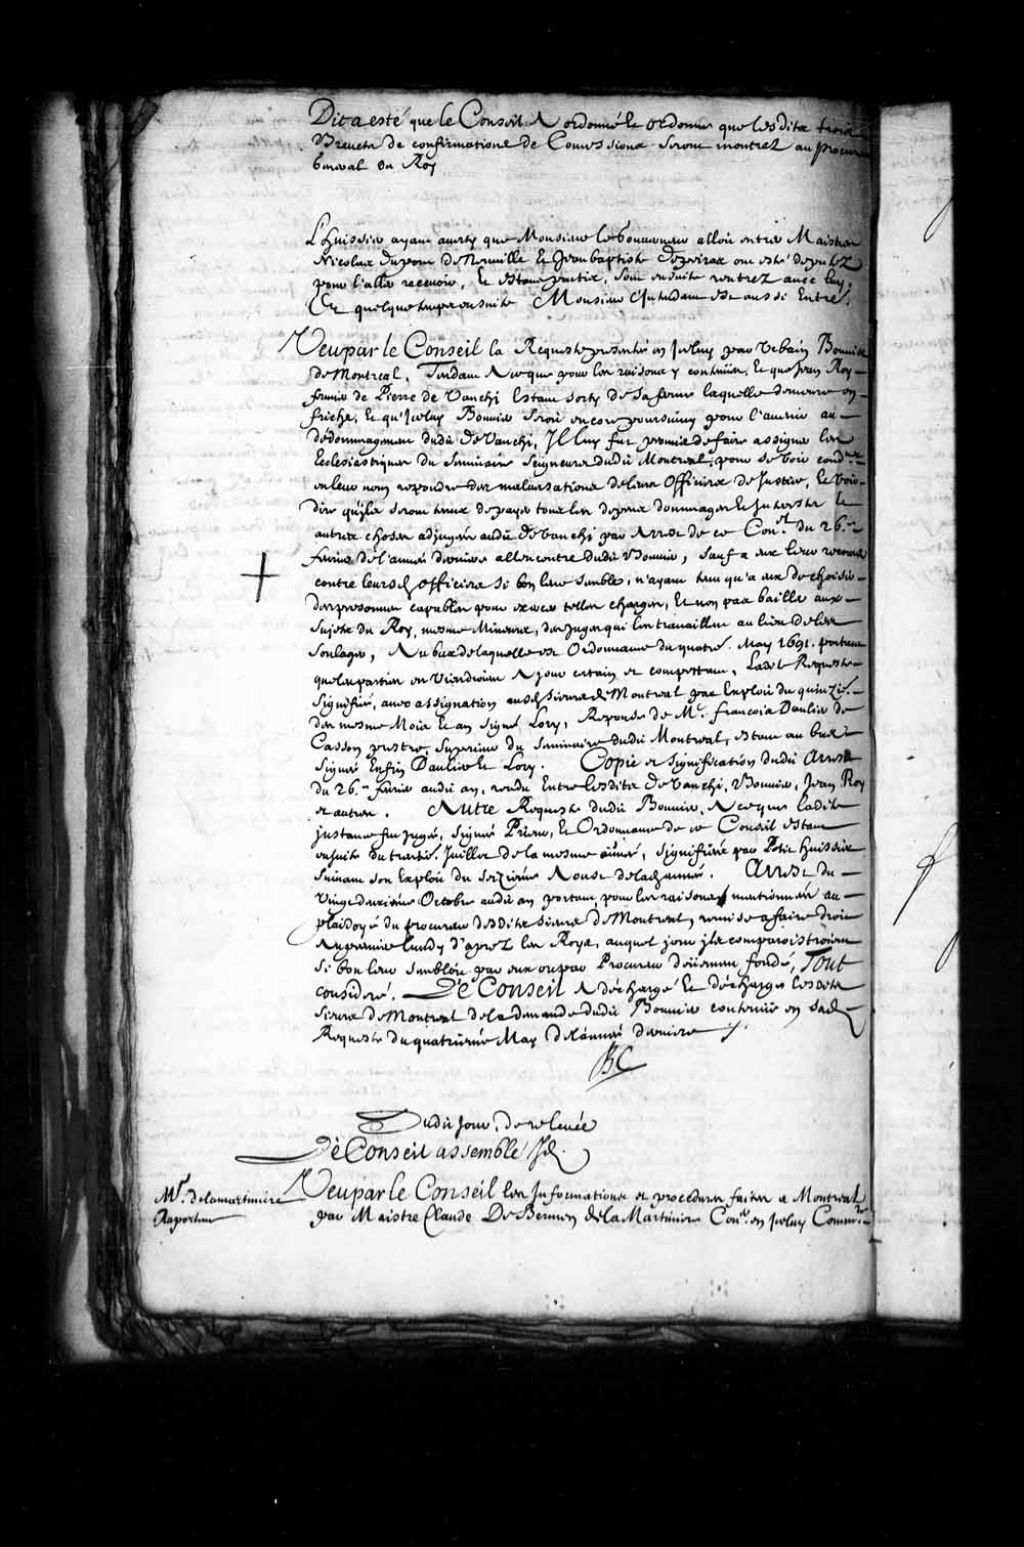 Dit a esté que le Conseil A ordonné et ordonne que lesdits trois
Brevets de confirmations de Concessions seront montrez au procureur
general du Roy
L'huissier ayant averty que Monsieur le Gouverneur alloit entrer Maistres
Nicolas dupont de Neuville et Jean baptiste depeiras ont esté deputez
pour l'aller recevoir, Et estans sortis, sont ensuite rentrez avec luy,
Et quelque temps ensuite Monsieur l'Intendant est aussi Entré.
Veu par le Conseil la Requeste presentée en Iceluy par Urbain Bouvier
de Montreal, Tendante A ce que pour les raisons y contenües, Et que Jean Roy
fermier de Pierre de Vanchi Estant sorty de sa ferme laquelle demeure en
friche, Et qu'Iceluy Bouvier seroit encore poursuivy pour l'avenir au
dédommagement dudit de Vanchi, Il luy fut permis de faire assigner les
Ecclesiastiques du Seminaire Seigneurs dudit Montreal, pour se voir condner
en leur nom repondre des malversations de leurs Officiers de Justice, Et voir
dire qu'ils seront tenus de payer tous les depens dommages et Interests Et
autres choses adjugées audit de Vanchi par Arrest de ce Conel. du 26.e
fevrier de l'année derniere allencontre dudit Bouvier, sauf a eux leur recours
contre leursd. officiers si bon leur semble, n'ayant tenu qu'a eux de choisir
des personnes capables pour exercer telles charges, Et non pas bailler aux
sujets du Roy, mesme Mineurs, des juges qui les travaillent au lieu de les
soulager, Au bas de laquelle est Ordonnance du quatre. May 1691. portant
que les parties en viendroient A jour certain et competant, Ladte Requeste
signifiée, avec assignation ausd. sieurs de Montreal par Exploit du quinzie.
des mesme Mois et an signé Lory, Reponse de Mr. francois Daulier de
Casson prestre, superieur du Seminaire dudit Montreal, estant au bas
signée Enfin Daulier et Lory. Copie et signification dudit Arrest
du 26.e fevrier audit an, rendu Entre lesdits de Vanchi, Bouvier, Jean Roy
et autres. Autre Requeste dudit Bouvier, A ce que ladite
instance fut jugée, signée Prieur, Et Ordonnance de ce Conseil estant
ensuite du trentie. Juillet de la mesme année, signifiée par Petit huissier
suivant son Exploit du seizieme Aoust de lad. année. Arrest du
Vingt deuxieme Octobre audit an portant pour les raisons mentionnées au
plaidoyé du procureur desdits sieurs de Montreal, remise a faire droit
au premier lundy d'aprez les Roys, auquel jour ils comparoistroient
si bon leur sembloit par eux ou par Procureur deüement fondé, Tout
consideré. Le Conseil A déchargé Et décharge lesdits
sieurs de Montreal de la demande dudit Bouvier contenüe en sad.
Requeste du quatrieme May de l'année derniere ./.
BC
Dudit Jour, de relevée
Le Conseil assemblé
Mr. de la martiniere
Raporteur
Veu par le Conseil les Informations et procedures faites a Montreal
par Maistre Claude De Bermen de la Martiniere Coner. en Iceluy Commre.